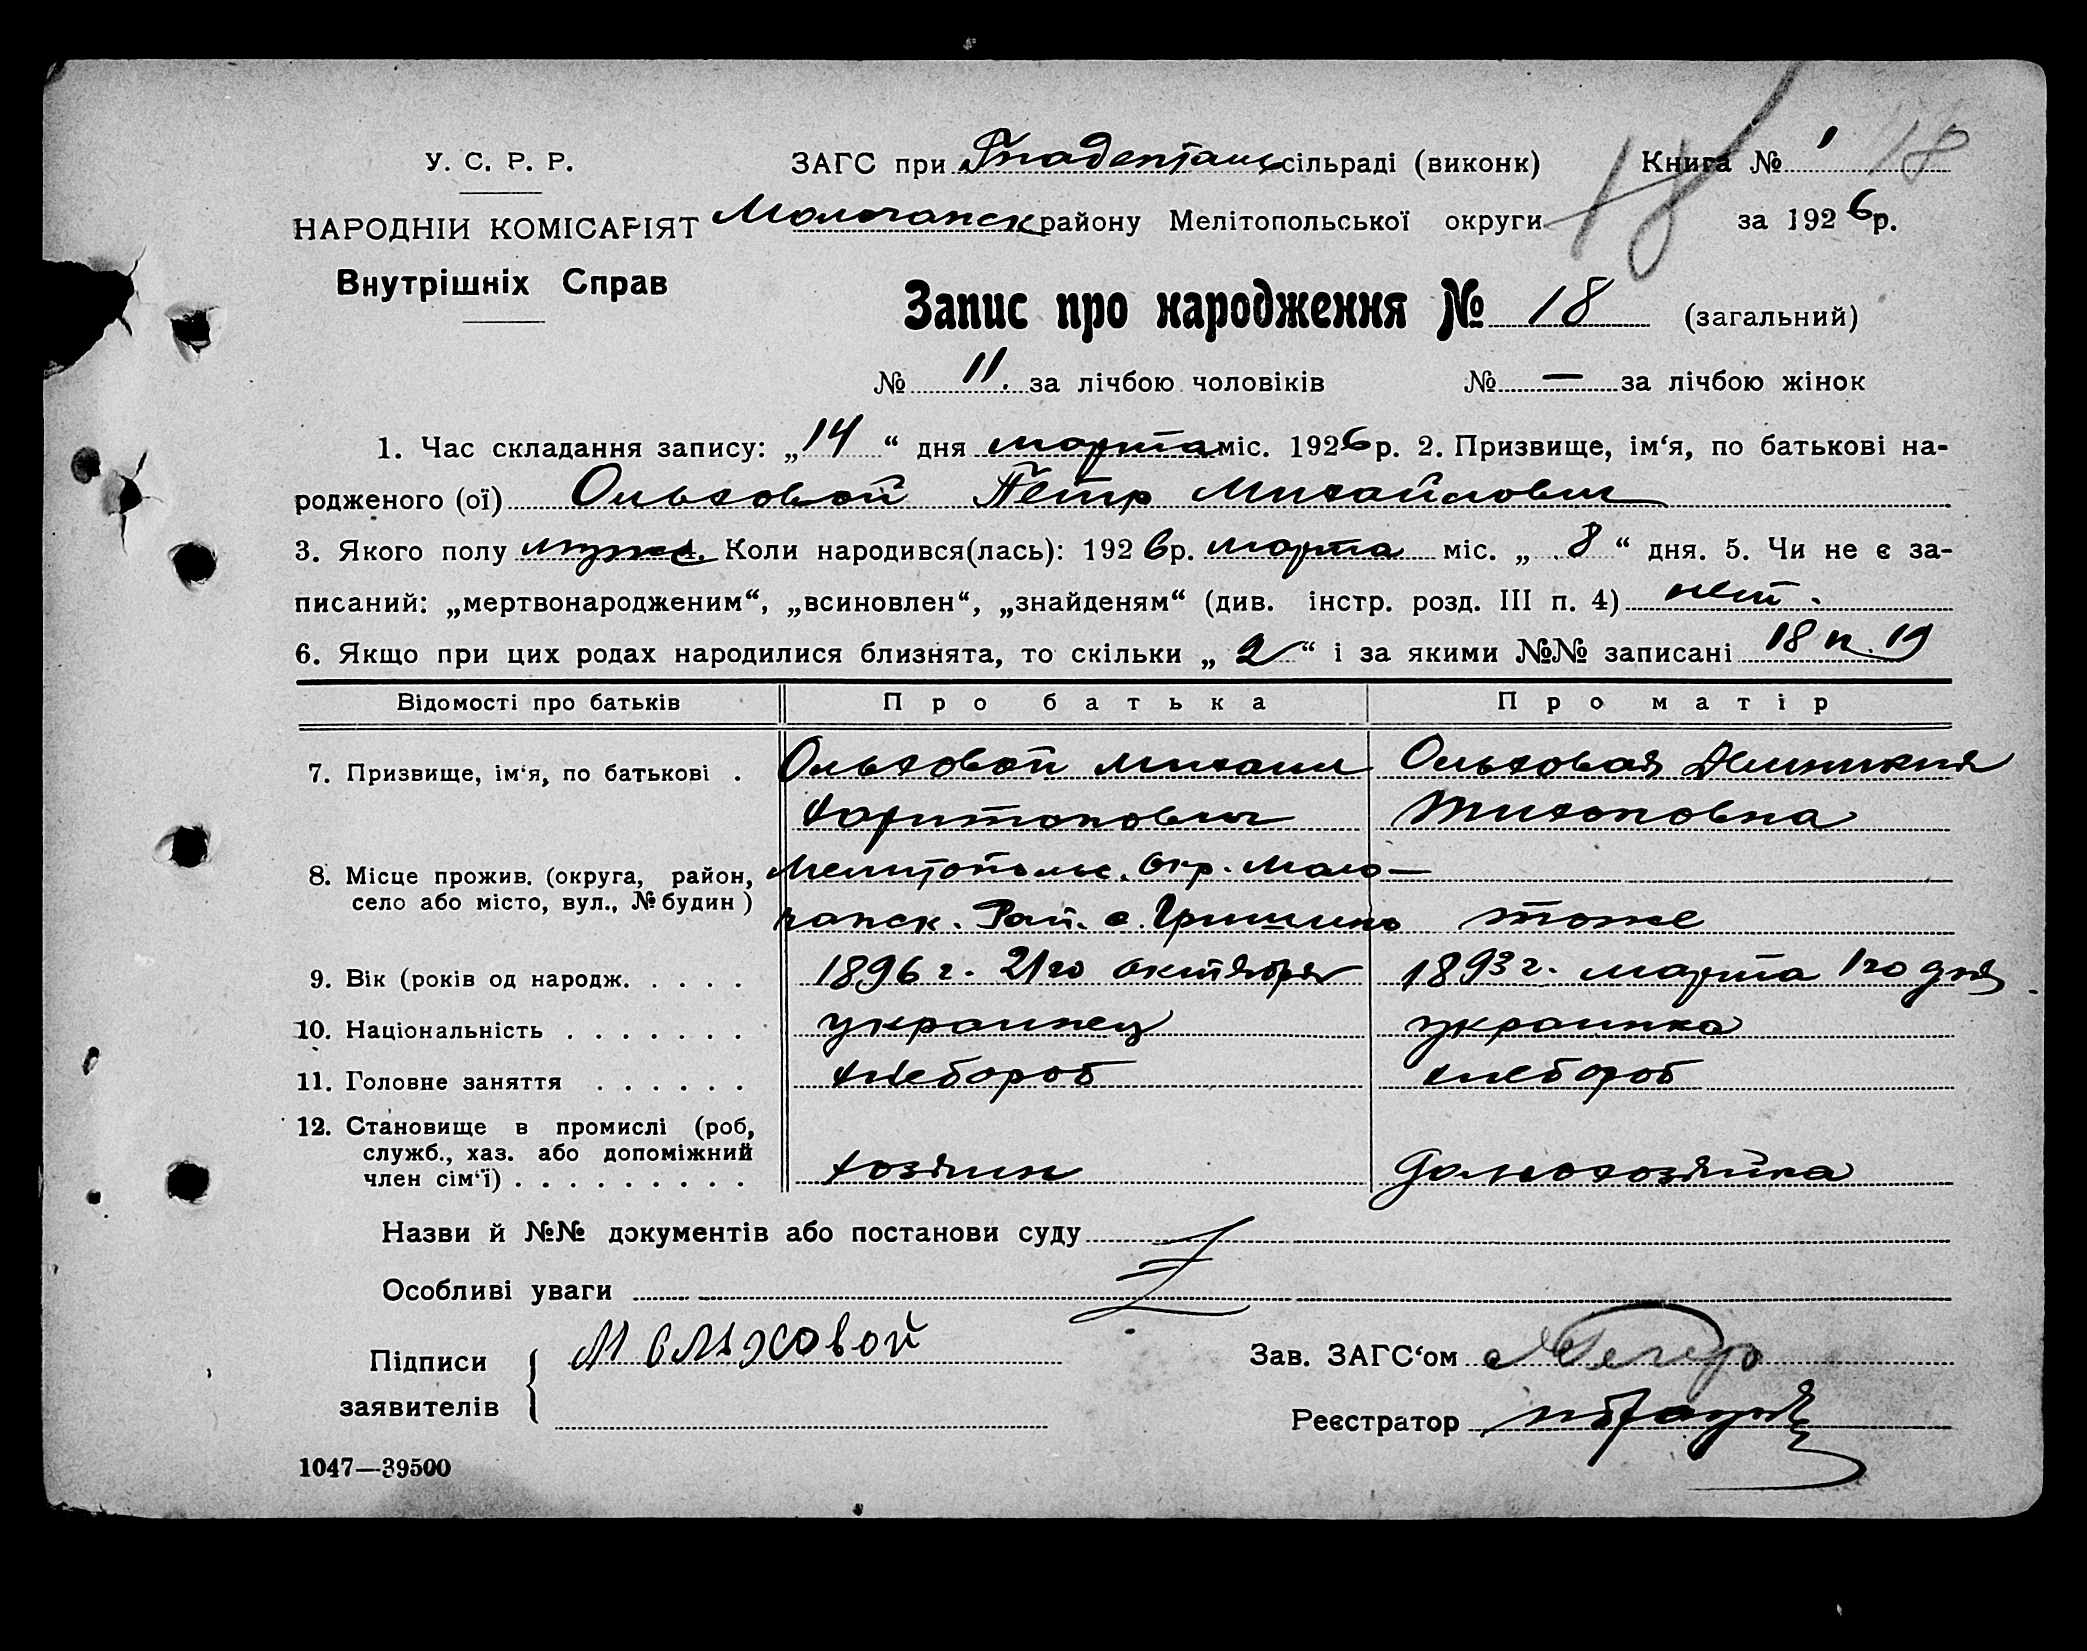 18
У. С. Р. Р.
ЗАГС при Гнадентальс сільраді (виконк)
Книга № 1 18
НАРОДНІЙ КОМІСАРІЯТ
Молочанск району Мелітопольської округи
за 1926 р.
Внутрішніх Справ
Запис про народження № 18 (загальний)
№ 11. за лічбою чоловіків № — за лічбою жінок
1. Час складання запису: „14“ дня марта міс. 1926 р. 2. Призвище, ім‘я, по батькові на-
родженого (ої) Ольховой Петр Михайлович
3. Якого полу мужс. Коли народився(лась): 1926 р. марта міс. „8“ дня. 5. Чи не є за-
писаний: „мертвонародженим“, „всиновлен“, „знайденям“ (див. інстр. розд. III п. 4) нет.
6. Якщо при цих родах народилися близнята, то скільки „2“ і за якими №№ записані 18 и 19
Відомості про батьків Про батька Про матір
7. Призвище, ім‘я, по батькові . Ольховой Михаил Ольховая
Харитонович Тихоновна
8. Місце прожив. (округа, район, Мелитопольс. Окр. Моло —
село або місто, вул., № будин) чанск. Рай. с. Гришино тоже
9. Вік (років од народж. . . . . 1896 г. 21го октября 1893 г. марта 1го дня
10. Національність . . . . . . . украинец украинка
11. Головне заняття . . . . . . хлебороб хлебороб
12. Становище в промислі (роб,
служб., хаз. або допоміжний
член сім‘ї) . . . . . . . . . хозяин домохозяйка
Назви й №№ документів або постанови суду
Особливі уваги
Підписи
заявителів
М Ольховой
Зав. ЗАГС‘ом
Реєстратор
1047—39500